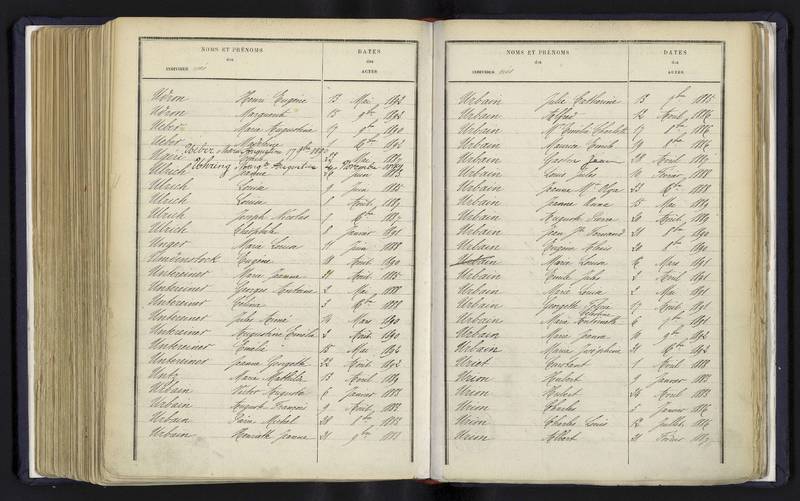 NOMS ET PRÉNOMS
des
INDIVIDUS nés
DATES
des
ACTES
Udron Henri Eugène 13 Mai 1892
Udron Marguerite 15 9bre 1892
Ueber Marie Augustine 17 9bre 1890
Ueber Madeleine 16 Xbre 1892
Ueber Marie Augustine 17 9bre 1890
Ulrich Jeanne Juin 1883
Ulrich Louis 9 Juin 1885
Ulrich Louise Août 1885
Ulrich Joseph Nicolas Xbre 1887
Ulrich Joséphine 8 Janvier 1891
Unger Marie Louise 11 Juin 1888
Umdenstock Eugène 18 Août 1890
Untereiner Marie Jeanne 21 Août 1885
Untereiner Georges Antoine 2 Mai 1888
Untereiner Emma 3 Xbre 1888
Untereiner Jules Aimé 14 Mars 1890
Untereiner Augustine Emélie 2 Août 1890
Untereiner Emélie 15 Mai 1892
Untereiner Jeanne Georgette 22 Août 1892
Untz Marie Mathilde 13 Avril 1889
Urbain Victor Auguste 6 Janvier 1883
Urbain Auguste François 9 Août 1883
Urbain Pierre Michel 28 8bre 1883
Urbain Henriette Jeanne 21 9bre 1883
NOMS ET PRÉNOMS
des
INDIVIDUS nés
DATES
des
ACTES
Urbain Julie Catherine 13 9bre 1885
Urbain Alfred 12 Avril 1886
Urbain Mie Emélie Charlotte 17 8bre 1886
Urbain Maurice Ernest 19 8bre 1886
Urbain Gaston Jean 28 Avril 1887
Urbain Louis Jules 14 Février 1888
Urbain Jeanne Mie Olga 23 Xbre 1888
Urbain Jeanne Anna 15 Mai 1889
Urbain Auguste Pierre 20 Août 1889
Urbain Jean Jh Fernand 21 8bre 1890
Urbain Eugène Alexis 20 8bre 1890
Urbain Marie Louise 16 Mars 1891
Urbain Emile Jules 2 Avril 1891
Urbain Marie Louise 2 Mai 1891
Urbain Georgette 17 Août 1891
Urbain Marie Antoinette Célestine 6 9bre 1891
Urbain Marie Jeanne 10 9bre 1892
Urbain Marie Joséphine 21 Xbre 1892
Uriot Constant 1 Avril 1888
Urion Hubert 9 Janvier 1883
Urion Hubert 24 Avril 1883
Urion Charles 5 Janvier 1886
Urion Charles Louis 12 Juillet 1886
Urion Albert 21 Février 1887